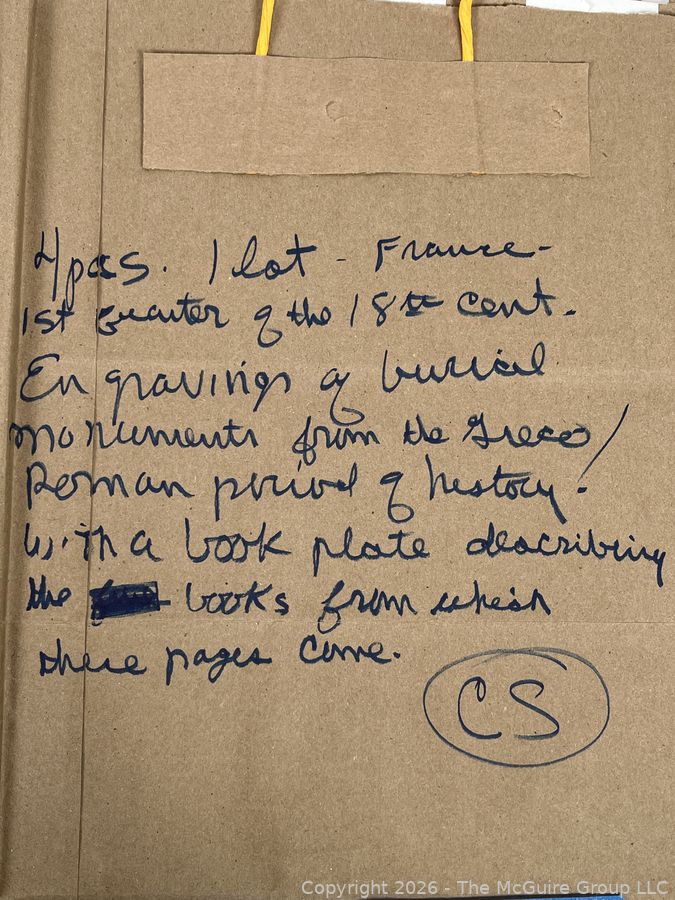 4 pcs. 1 lot - France -
1st quarter of the 18th cent.
Engravings of burial
monuments from the Greco/
Roman period of history.
With a book plate describing
the books from which
these pages come.
CS
Copyright 2026 - The McGuire Group LLC